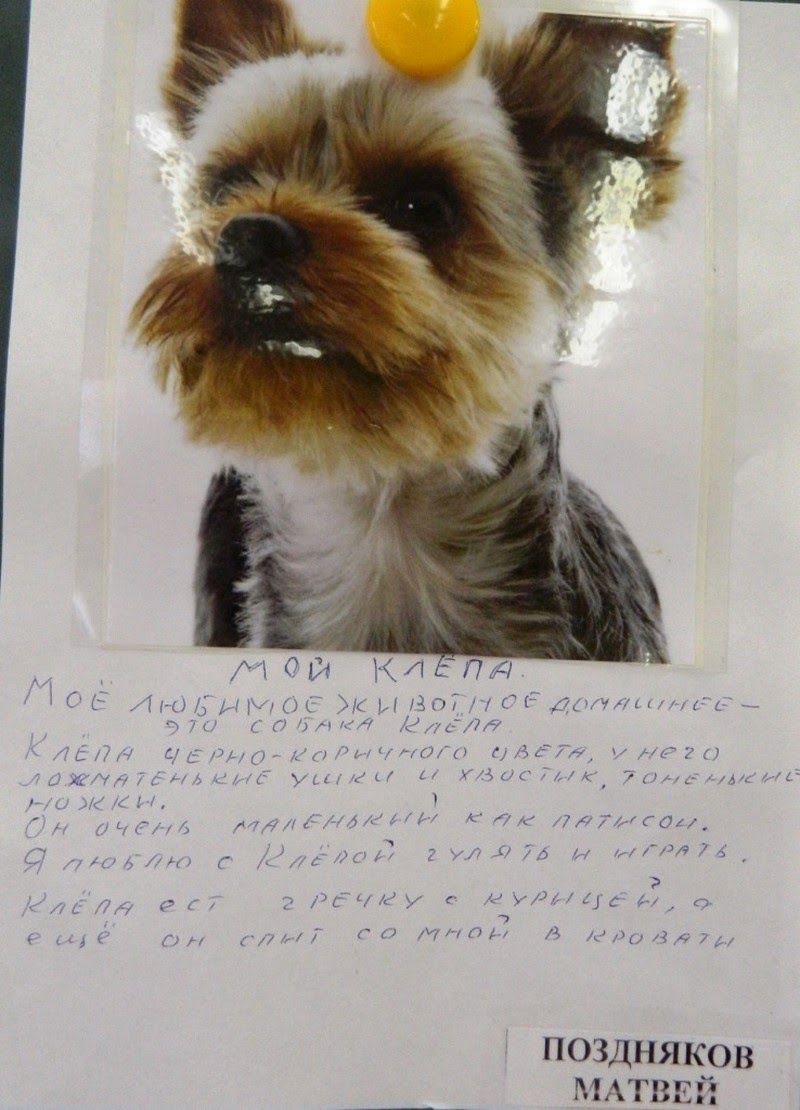 МОЙ КЛЁПА.
МОЁ ЛЮБИМОЕ ЖИВОТНОЕ ДОМАШНЕЕ –
ЭТО СОБАКА КЛЁПА.
КЛЁПА ЧЕРНО-КОРИЧНОГО ЦВЕТА, У НЕГО
ЛОХМАТЕНЬКИЕ УШКИ И ХВОСТИК, ТОНЕНЬКИЕ
НОЖКИ.
ОН ОЧЕНЬ МАЛЕНЬКИЙ КАК ПАТИСОН.
Я ЛЮБЛЮ С КЛЁПОЙ ГУЛЯТЬ И ИГРАТЬ.
КЛЁПА ЕСТ ГРЕЧКУ С КУРИЦЕЙ, А
ЕЩЁ ОН СПИТ СО МНОЙ В КРОВАТИ
ПОЗДНЯКОВ
МАТВЕЙ